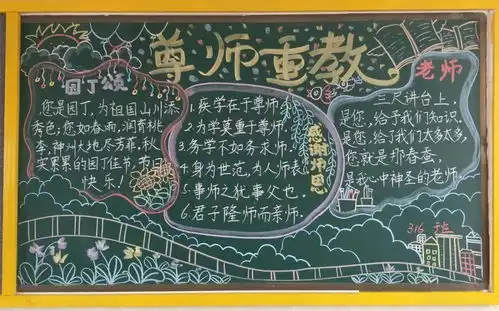 尊师重教
园丁颂
您是园丁,为祖国山川添
秀色,您如春雨,润育桃
李,神州大地尽芳菲,秋
实累累的园丁佳节,节日
快乐!
1.疾学在于尊师。
2.为学莫重于尊师。
3.务学不如务求师。
4.身为世范,为人师表
5.事师之犹事父也。
6.君子隆师而亲师。
感谢师恩
老师
三尺讲台上,
是您,给于我们知识,
是您,给于我们太多太多,
您就是那春蚕,
是我心中神圣的老师。
316班